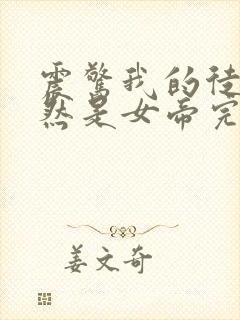 震惊我的徒
然是女帝完
姜文奇